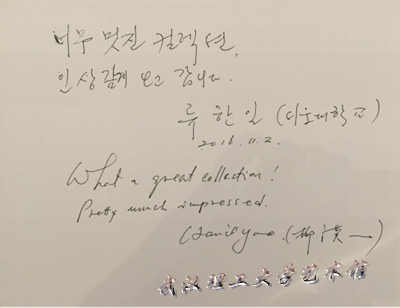 너무 멋진 컬렉션,
인상깊게 보고 갑니다.
류 한 일 (서호대학교)
2016. 11. 2.
What a great collection!
Pretty much impressed.
(柳漢一)
武汉理工大学艺术馆